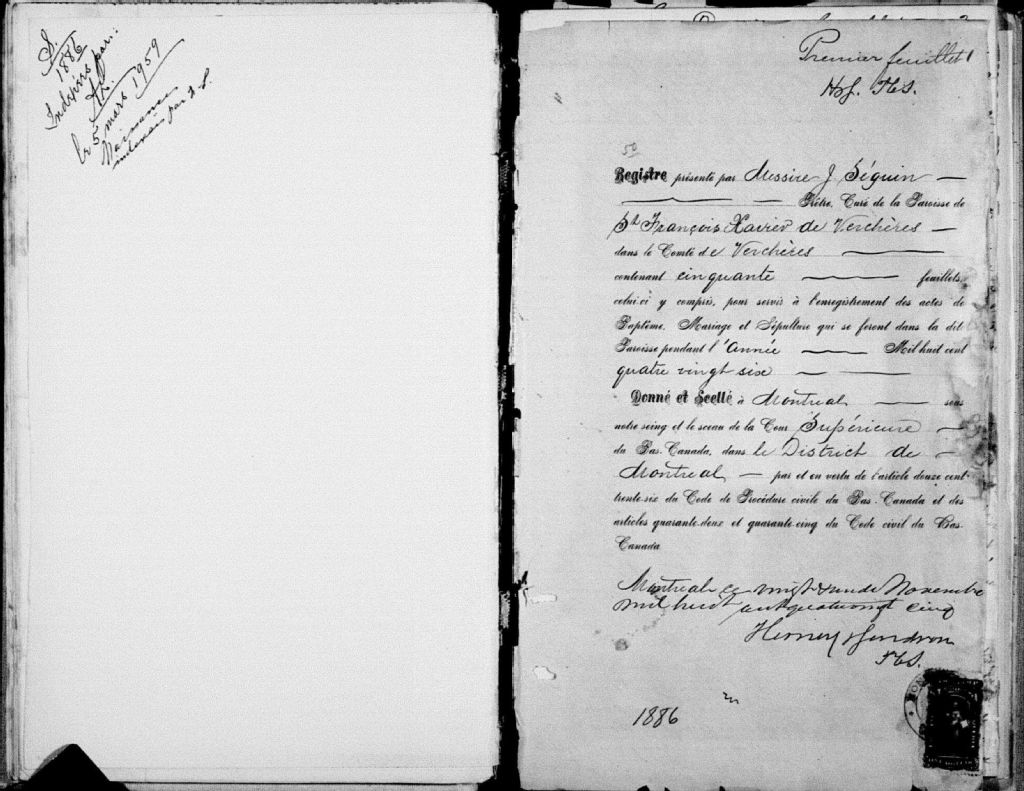 S.
1886
Indexées par:
le 5 mars 1959
Naissances
par
Premier feuillet
50
Registre présenté par Messire J Séguin —
— Prêtre, Curé de la Paroisse de
St François Xavier de Verchères —
dans le Comté de Verchères —
contenant cinquante — feuillets,
celui-ci y compris, pour servir à l'enregistrement des actes de
Baptême, Mariage et Sépulture qui se feront dans la dite
Paroisse pendant l'Année — Mil huit cent
quatre vingt six —
Donné et Scellé à Montreal — sous
notre seing et le sceau de la Cour Supérieure —
du Bas-Canada, dans le District de —
Montreal — par et en vertu de l'article douze cent
trente-six du Code de Procédure civile du Bas-Canada et des
articles quarante-deux et quarante-cinq du Code civil du Bas-
Canada
Montreal ce vingt & un de Novembre
mil huit cent quatrevingt cinq
1886